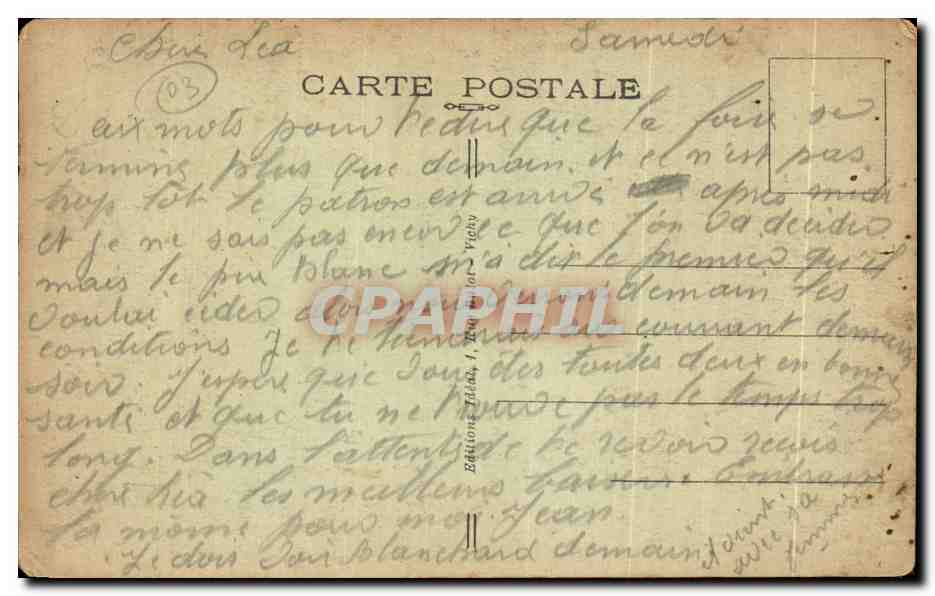 Samedi
Chere Lea
03
CARTE POSTALE
aux mots pour te dire que la foire se
termine plus que demain. et ce n'est pas
trop tot le patron est arrivé après midi
et je ne sais pas encore ce que l'on va decider
mais le pere Blanc m'a dit le premier qu'il
voulai ceder demain les
conditions Je te tiendrais au courrant demain
soir. J'espere que vous étes toutes deux en bonne
santé et que tu ne trouve pas le temps trop
long. Dans l'attente de te revoir recois
chere Lea les meilleurs baisers. Embrasse
la mome pour moi. Jean.
Je dois voir Blanchard demain
avec sa
femme
Editions Idéal, 1, Rue - Vichy
CPAPHIL